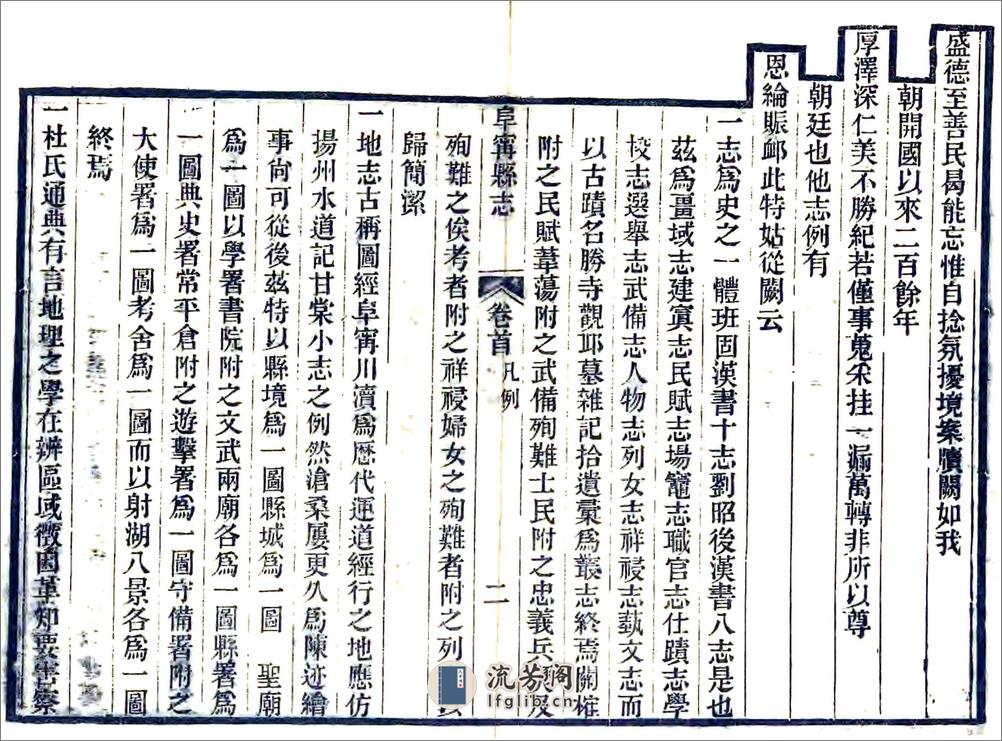 盛德至善民曷能忘惟自捻氛擾境案牘闕如我
朝開國以來二百餘年
厚澤深仁美不勝紀若僅事蒐采挂一漏萬轉非所以尊
朝廷也他志例有
恩綸賑卹此特姑從闕云
一志為史之一體班固漢書十志劉昭後漢書八志是也
茲為疆域志建寘志民賦志場竈志職官志仕蹟志學
校志選舉志武備志人物志列女志祥祲志藝文志而
以古蹟名勝寺觀邱墓雜記拾遺彙為叢志終焉關榷
附之民賦葦蕩附之武備殉難士民附之忠義兵及
殉難之俟考者附之祥祲婦女之殉難者附之列
歸簡潔
阜寗縣志 卷首 凡例 二
一地志古稱圖經阜寗川瀆為歷代運道經行之地應仿
揚州水道記甘棠小志之例然滄桑屢更久為陳迹繪
事尚可從後茲特以縣境為一圖縣城為一圖 聖廟
為一圖以學署書院附之文武兩廟各為一圖縣署為
一圖典史署常平倉附之遊擊署為一圖守備署附之
大使署為一圖考舍為一圖而以射湖八景各為一圖
終焉
一杜氏通典有言地理之學在辨區域徵因革知要害察
流芳閣
lfglib.cn